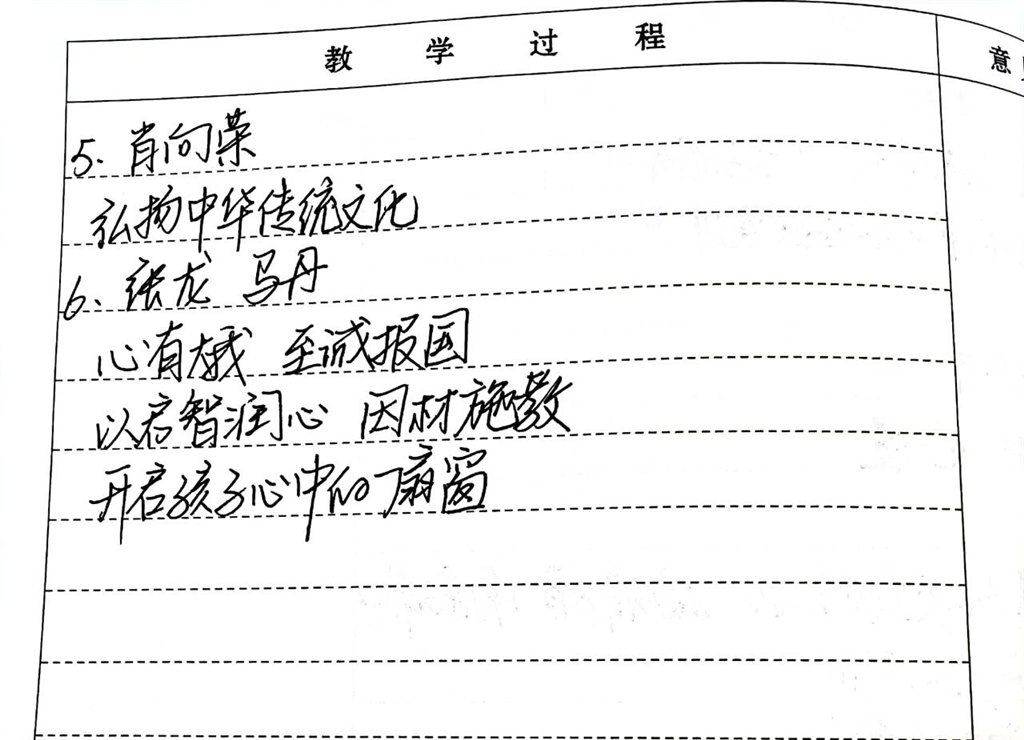 教学过程
意
5. 肖向荣
弘扬中华传统文化
6. 张龙 马丹
心有大我 至诚报国
以启智润心 因材施教
开启孩子心中的扇窗